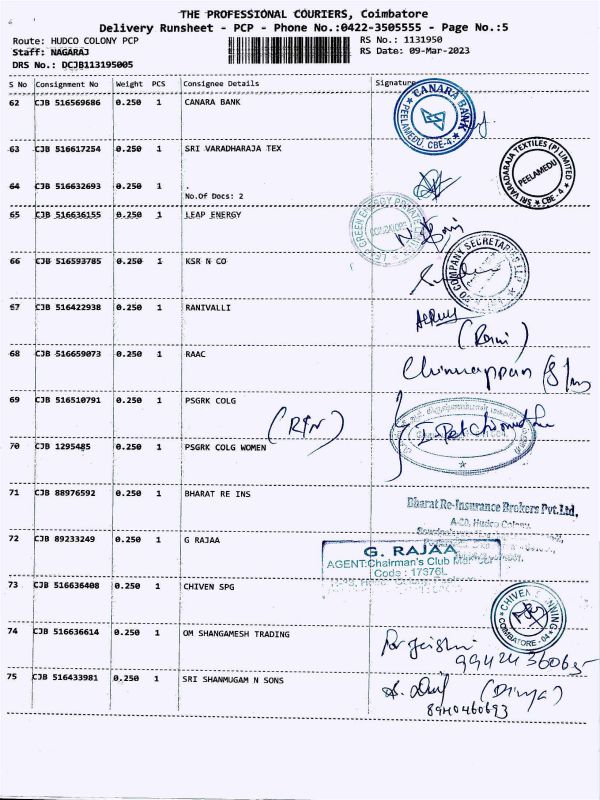 THE PROFESSIONAL COURIERS, Coimbatore
Delivery Runsheet - PCP - Phone No.:0422-3505555 - Page No.:5
Route: HUDCO COLONY PCP RS No.: 1131950
Staff: NAGARAJ RS Date: 09-Mar-2023
DRS No.: DCJB113195005
S No Consignment No Weight PCS Consignee Details Signature
62 CJB 516569686 0.250 1 CANARA BANK
CANARA BANK
PEELAMEDU, CBE-4
63 CJB 516617254 0.250 1 SRI VARADHARAJA TEX
SRI VARADARAJA TEXTILES (P) LIMITED
PEELAMEDU
CBE - 4
64 CJB 516632693 0.250 1 .
No.Of Docs: 2
65 CJB 516636155 0.250 1 LEAP ENERGY
LEAP GREEN ENERGY PRIVATE
COIMBATORE
66 CJB 516593785 0.250 1 KSR N CO
CO COMPANY SECRETARIES LLP
67 CJB 516422938 0.250 1 RANIVALLI
(Rani)
68 CJB 516659073 0.250 1 RAAC
Chinnappan
69 CJB 516510791 0.250 1 PSGRK COLG
70 CJB 1295485 0.250 1 PSGRK COLG WOMEN
71 CJB 88976592 0.250 1 BHARAT RE INS
Bharat Re-Insurance Brokers Pvt.Ltd,
A-20, Hudco Colony,
72 CJB 89233249 0.250 1 G RAJAA
G. RAJAA
AGENT:Chairman's Club Member
Code : 17376L
73 CJB 516636408 0.250 1 CHIVEN SPG
CHIVEN SPINNING
COIMBATORE - 04
74 CJB 516636614 0.250 1 OM SHANGAMESH TRADING
9942436065
75 CJB 516433981 0.250 1 SRI SHANMUGAM N SONS
(Divya)
8940460693